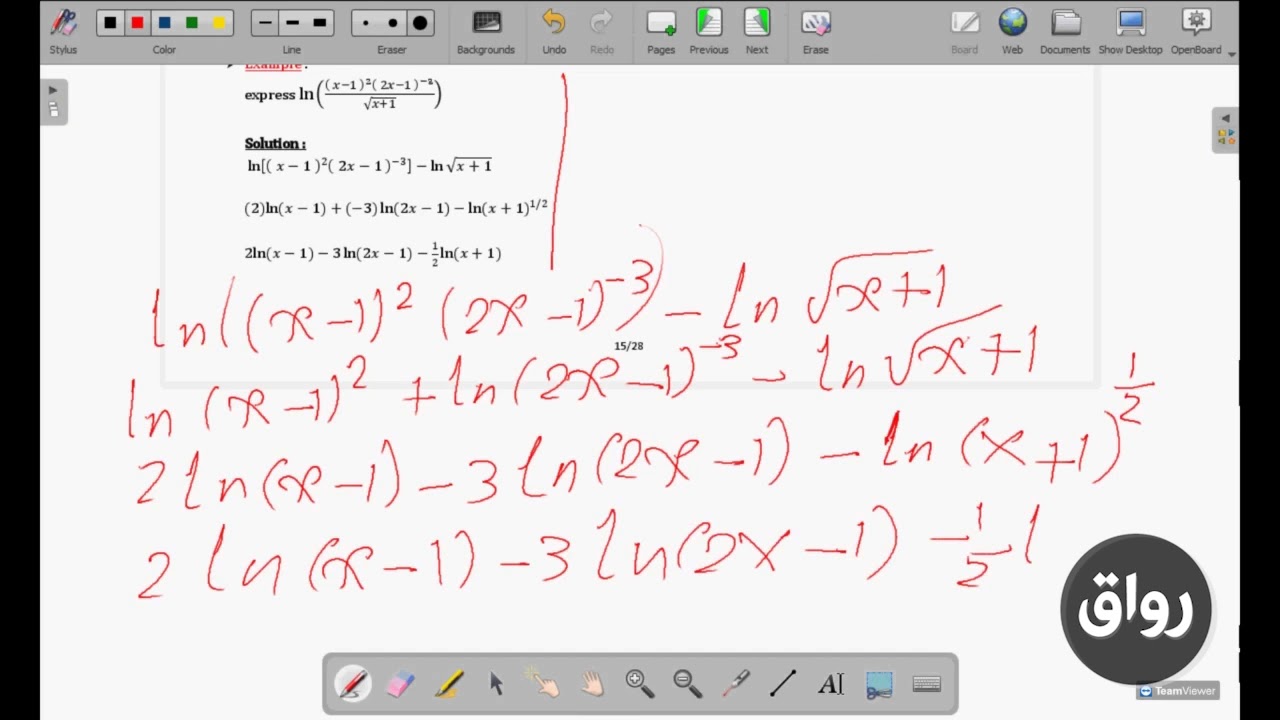 Stylus Color Line Eraser Backgrounds Undo Redo Pages Previous Next Erase Board Web Documents Show Desktop OpenBoard
Example :
express ln((x−1)²(2x−1)⁻³/√x+1)
Solution :
ln[( x − 1 )²( 2x − 1 )⁻³] − ln√x + 1
(2)ln(x − 1) + (−3)ln(2x − 1) − ln(x + 1)^1/2
2ln(x − 1) − 3 ln(2x − 1) − ½ln(x + 1)
ln((x−1)² (2x−1)⁻³) − ln √x+1
15/28
ln (x−1)² + ln(2x−1)⁻³ − ln √x+1
2 ln(x−1) − 3 ln(2x−1) − ln (x+1)^1/2
2 ln(x−1) − 3 ln(2x−1) − ½ l
رواق
AI
TeamViewer